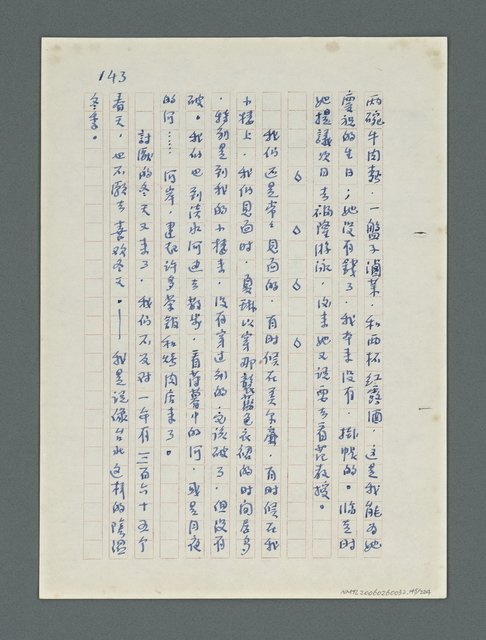 143
兩碗牛肉麵，一盤子滷菜，和兩杯紅露酒，這是我能為她
慶祝的生日；她沒有錢了，我本來沒有，掛帳的。臨走時
她提議次日去福隆游泳，後來她又說要去看范教授。
◇ ◇ ◇ ◇
我們還是常常見面的，有時候在美而廉，有時候在我
小樓上，我們見面時，夏琳以穿那襲藍色衣裙的時間居多
，特別是到我的小樓來，沒有穿過別的，它該破了，但沒有
破。我們也到淡水河邊去散步，看薄暮中的河，或是月夜
的河……河岸，建起許多茶館和烤肉店來了。
討厭的冬天又來了，我們不反對一年有三百六十五個
春天，也不願去喜歡冬天。——我是說像台北這樣的陰濕
冬季。
NMTL20060260032.145/224